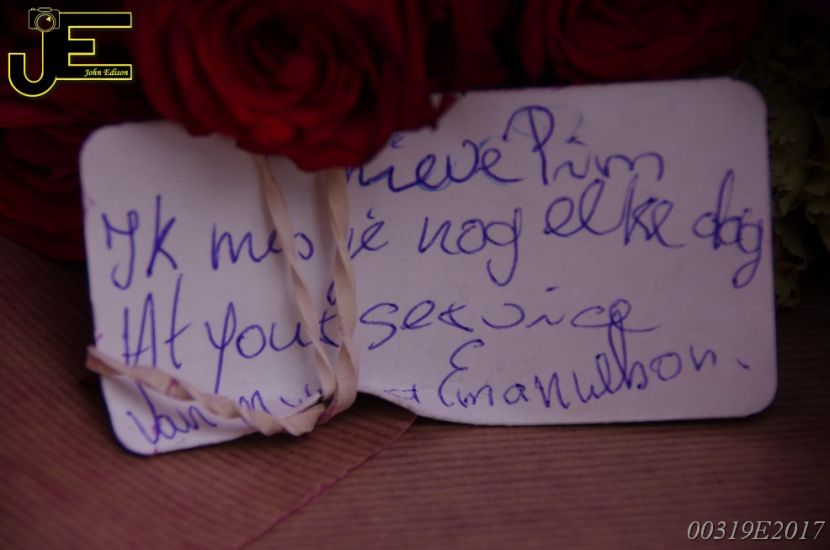 JE
John Edison
lieve Pim
Ik mis je nog elke dag
At your service
van Emanuelson.
00319E2017